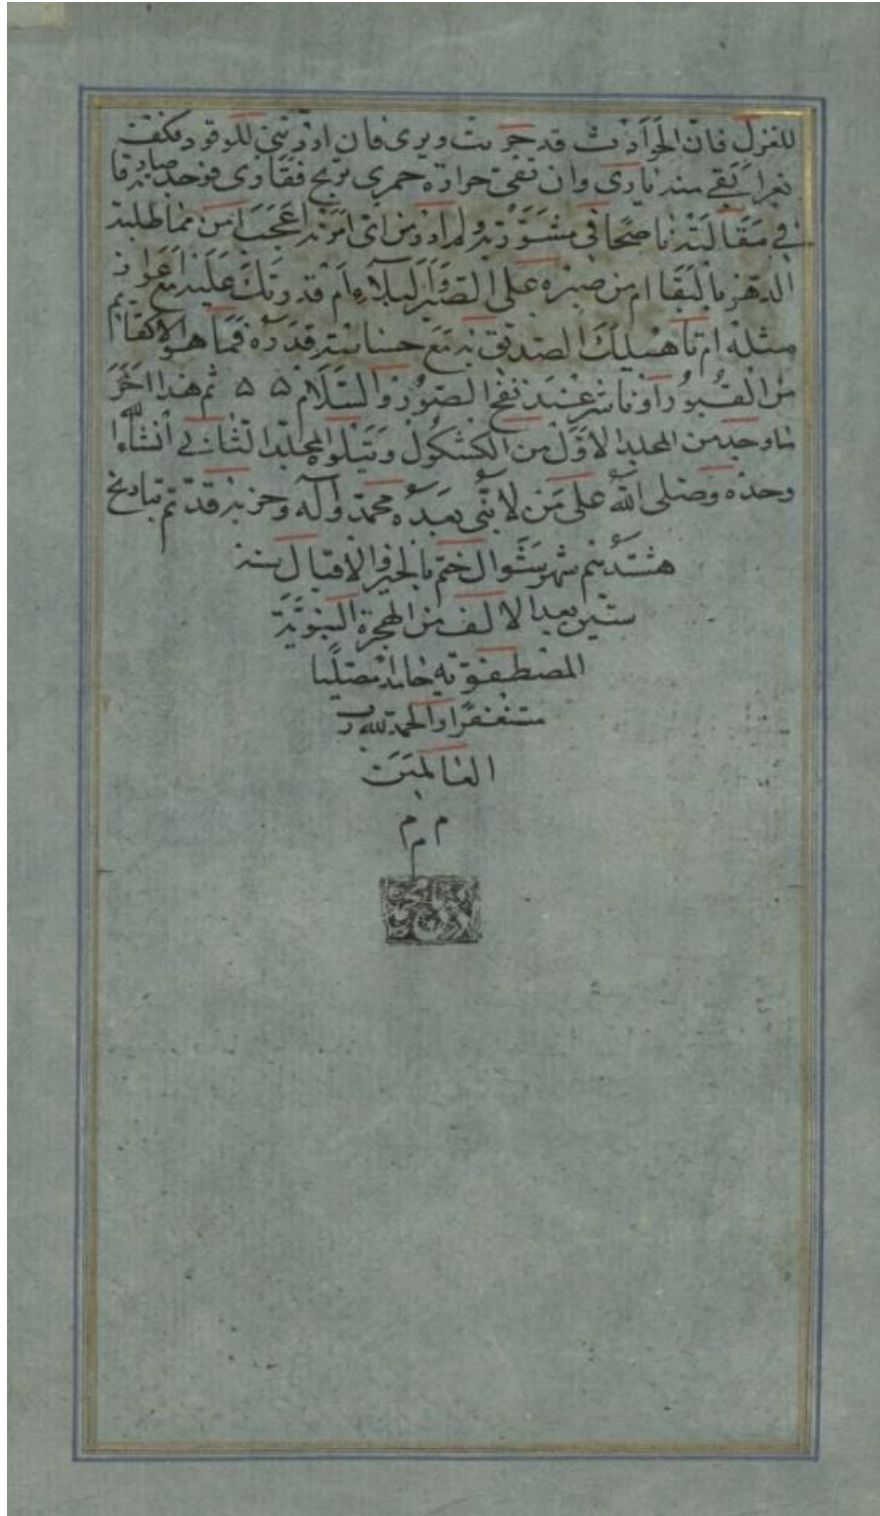 للغزل فان الحوادث قد حزبت وبرى فان اردتنى للوقود فكفت
نفرا يبقى منه نارى وان تفى حرارة جمرى بريح فقارى فوجدته صادقا
فى مقالته ناصحا فى مشورته ولم ادر من اى امريه اعجب امن مماطلته
الدهر بالبقا ام من صبره على الضر والبلاء ام قدرتك عليه مع اعواز
مثله ام تاهيلك الصديق به مع خساسته قدره فما هو الا كقائم
من القبور او ناشر عند نفخ الصور والسلام ۵۵ ثم هذا اخر
ما وجد من المجلد الاول من الكشكول ويتلوه المجلد الثانى انشاء الله
وحده وصلى الله على من لا نبى بعده محمد وآله وحزبه قد تم بتاريخ
هشتدهم شهر شوال ختم بالخير والاقبال سنه
ستين بعد الالف من الهجرة النبوية
المصطفوية حامدا مصليا
مستغفرا والحمد لله رب
العالمين
م م م